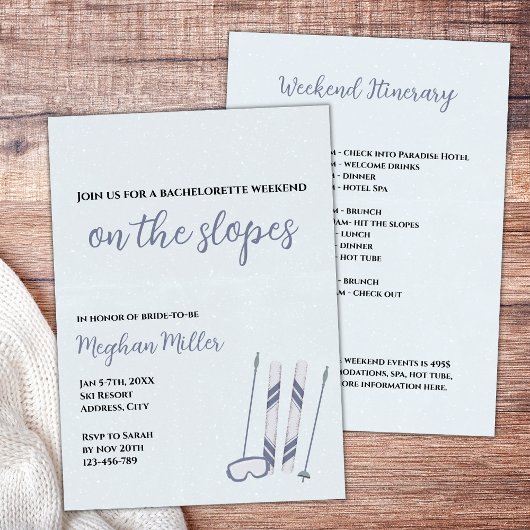 Join us for a bachelorette weekend
on the slopes
in honor of bride-to-be
Meghan Miller
Jan 5-7th, 20XX
Ski Resort
Address, City
Rsvp to Sarah
by Nov 20th
123-456-789
Weekend Itinerary
- check into Paradise Hotel
- welcome drinks
- dinner
- hotel Spa
- brunch
- hit the slopes
- lunch
- dinner
- hot tube
- brunch
- check out
weekend events is 495$
spa, hot tube,
more information here.